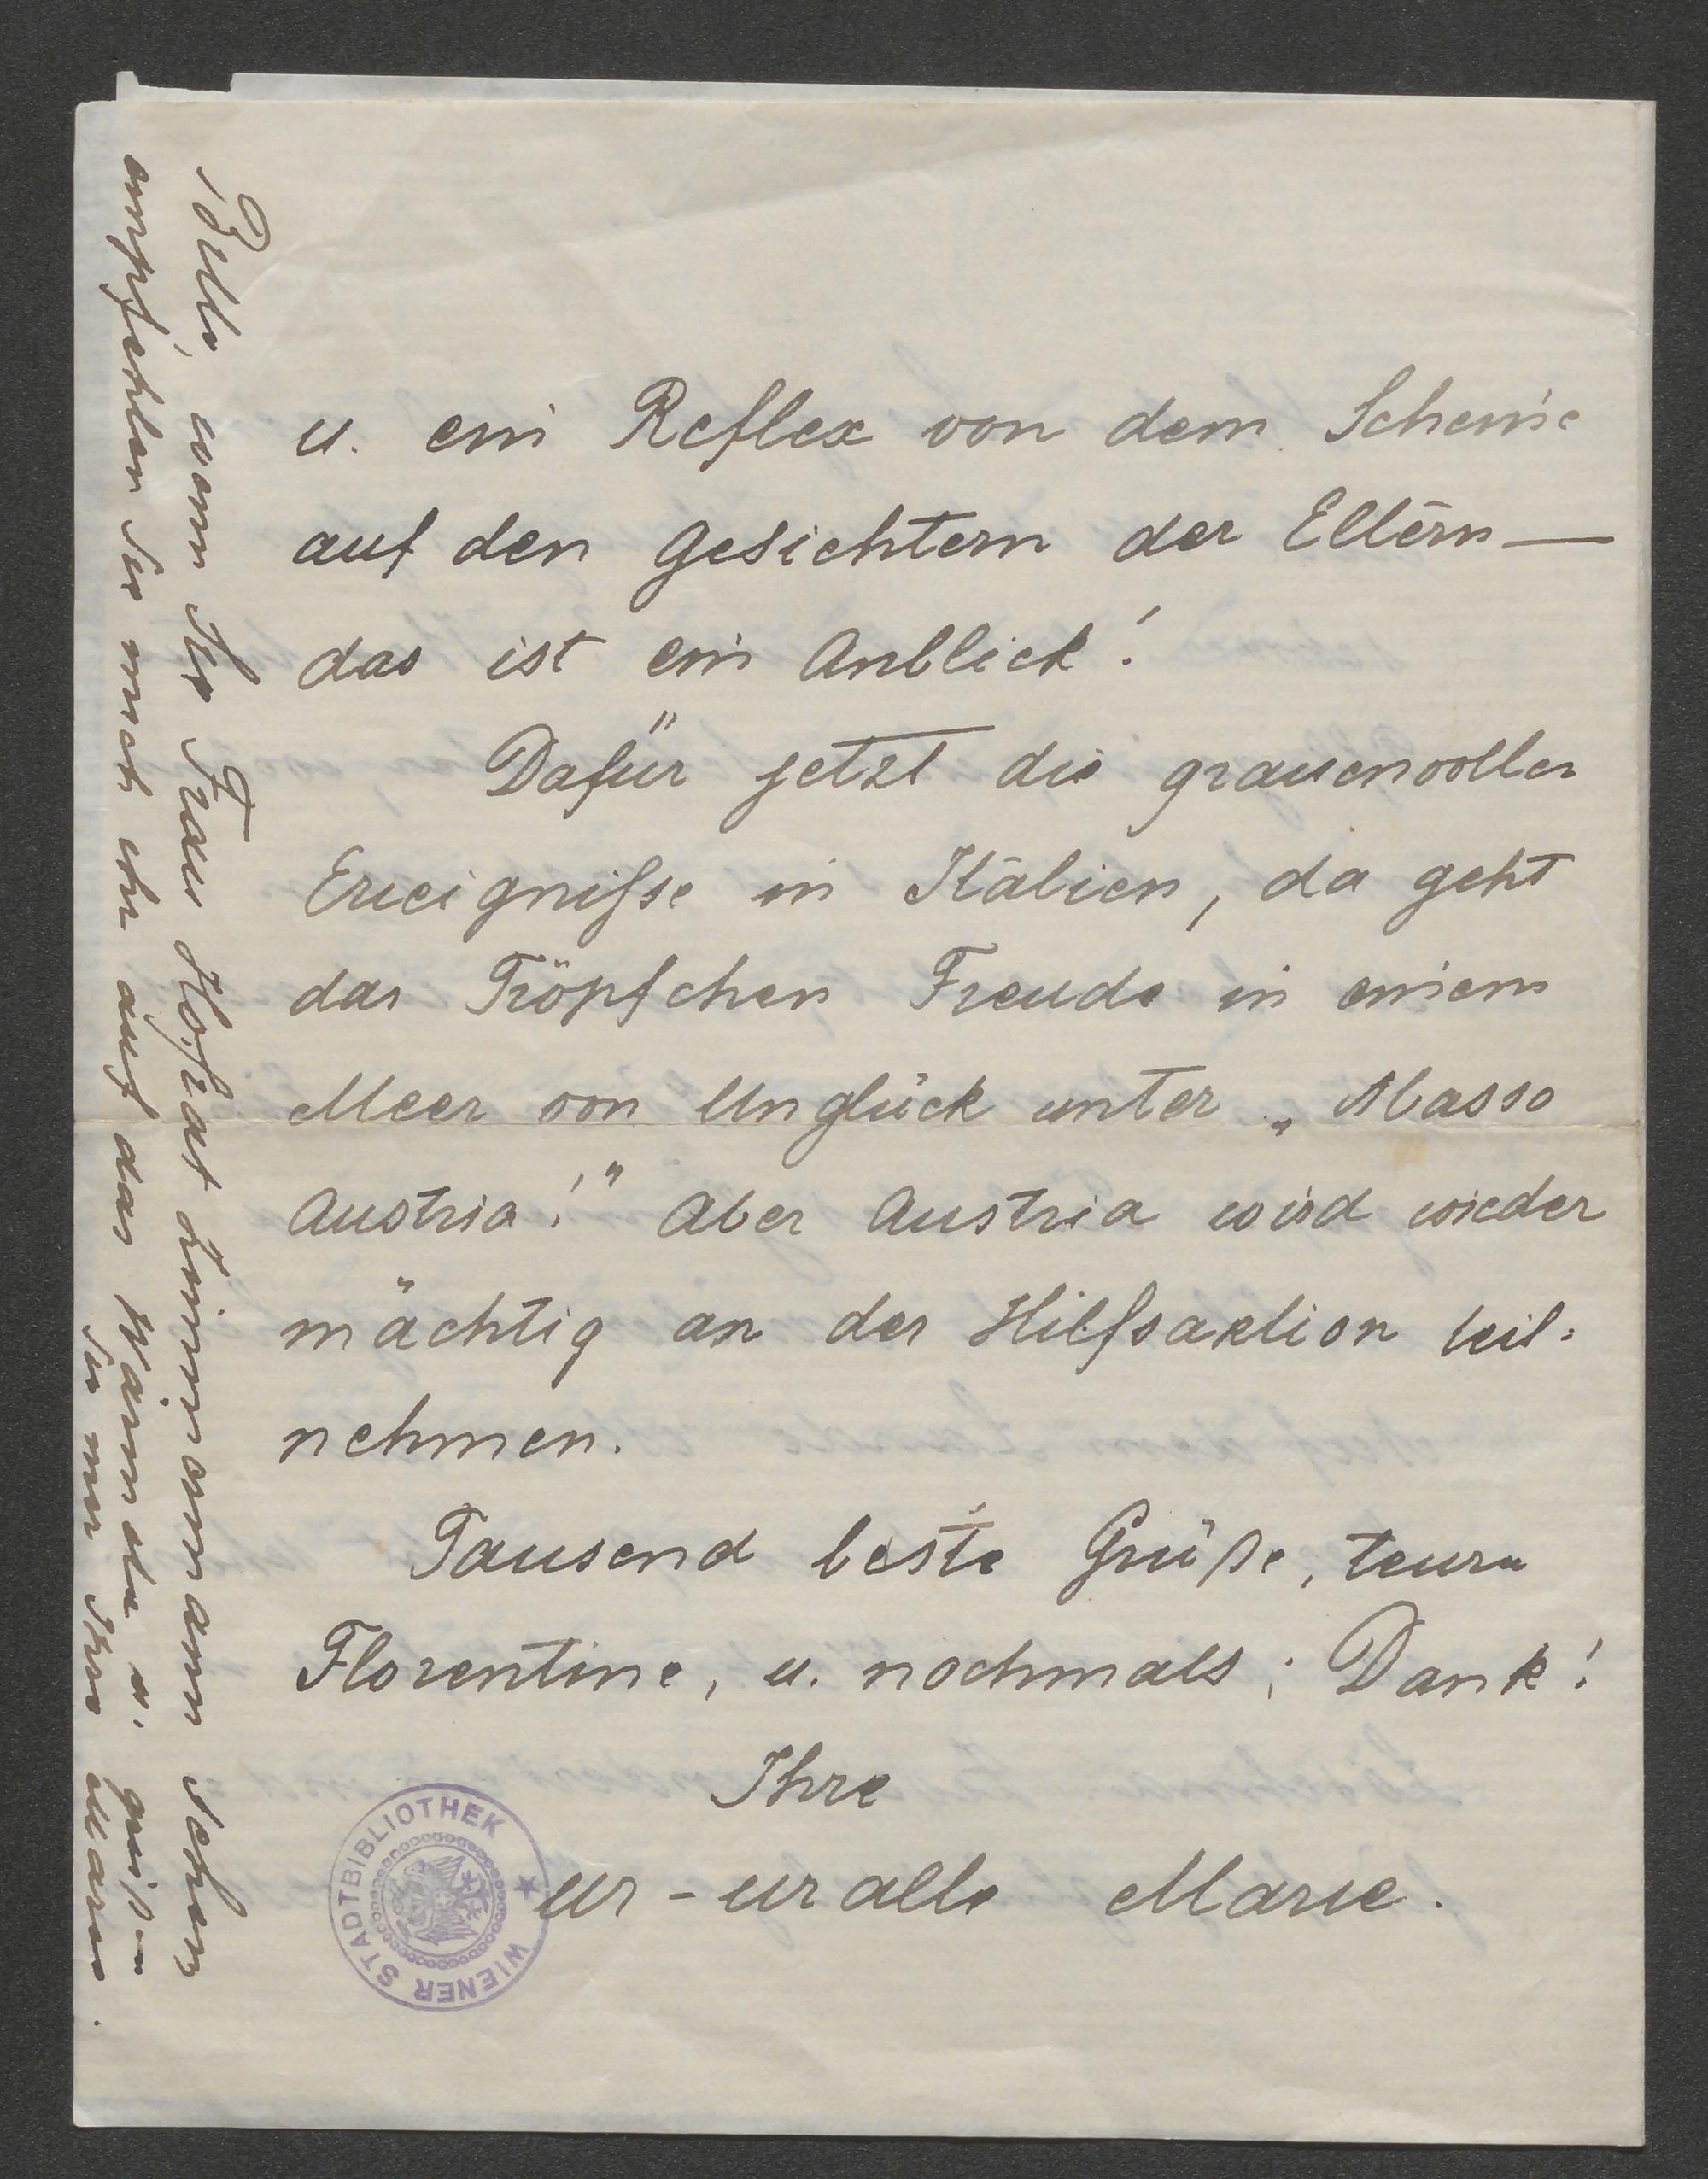 u. ein Reflex von dem Scheine
auf den Gesichtern der Eltern —
das ist ein Anblick!
Dafür jetzt die grauenvollen
Ereigniße in Italien, da geht
das Tröpfchen Freude in einem
Meer von Unglück unter. „Abasso
Austria!" Aber Austria wird wieder
mächtig an der Hilfsaktion teil=
nehmen.
Tausend beste Grüße, teure
Florentine, u. nochmals: Dank!
Ihre
ur-uralte Marie.
Bitte, wenn Sie Frau Hofrat sehen
empfehlen Sie mich ihr auf das Wärmste u. grüßen
Sie mir Ihre Marie.
WIENER STADTBIBLIOTHEK